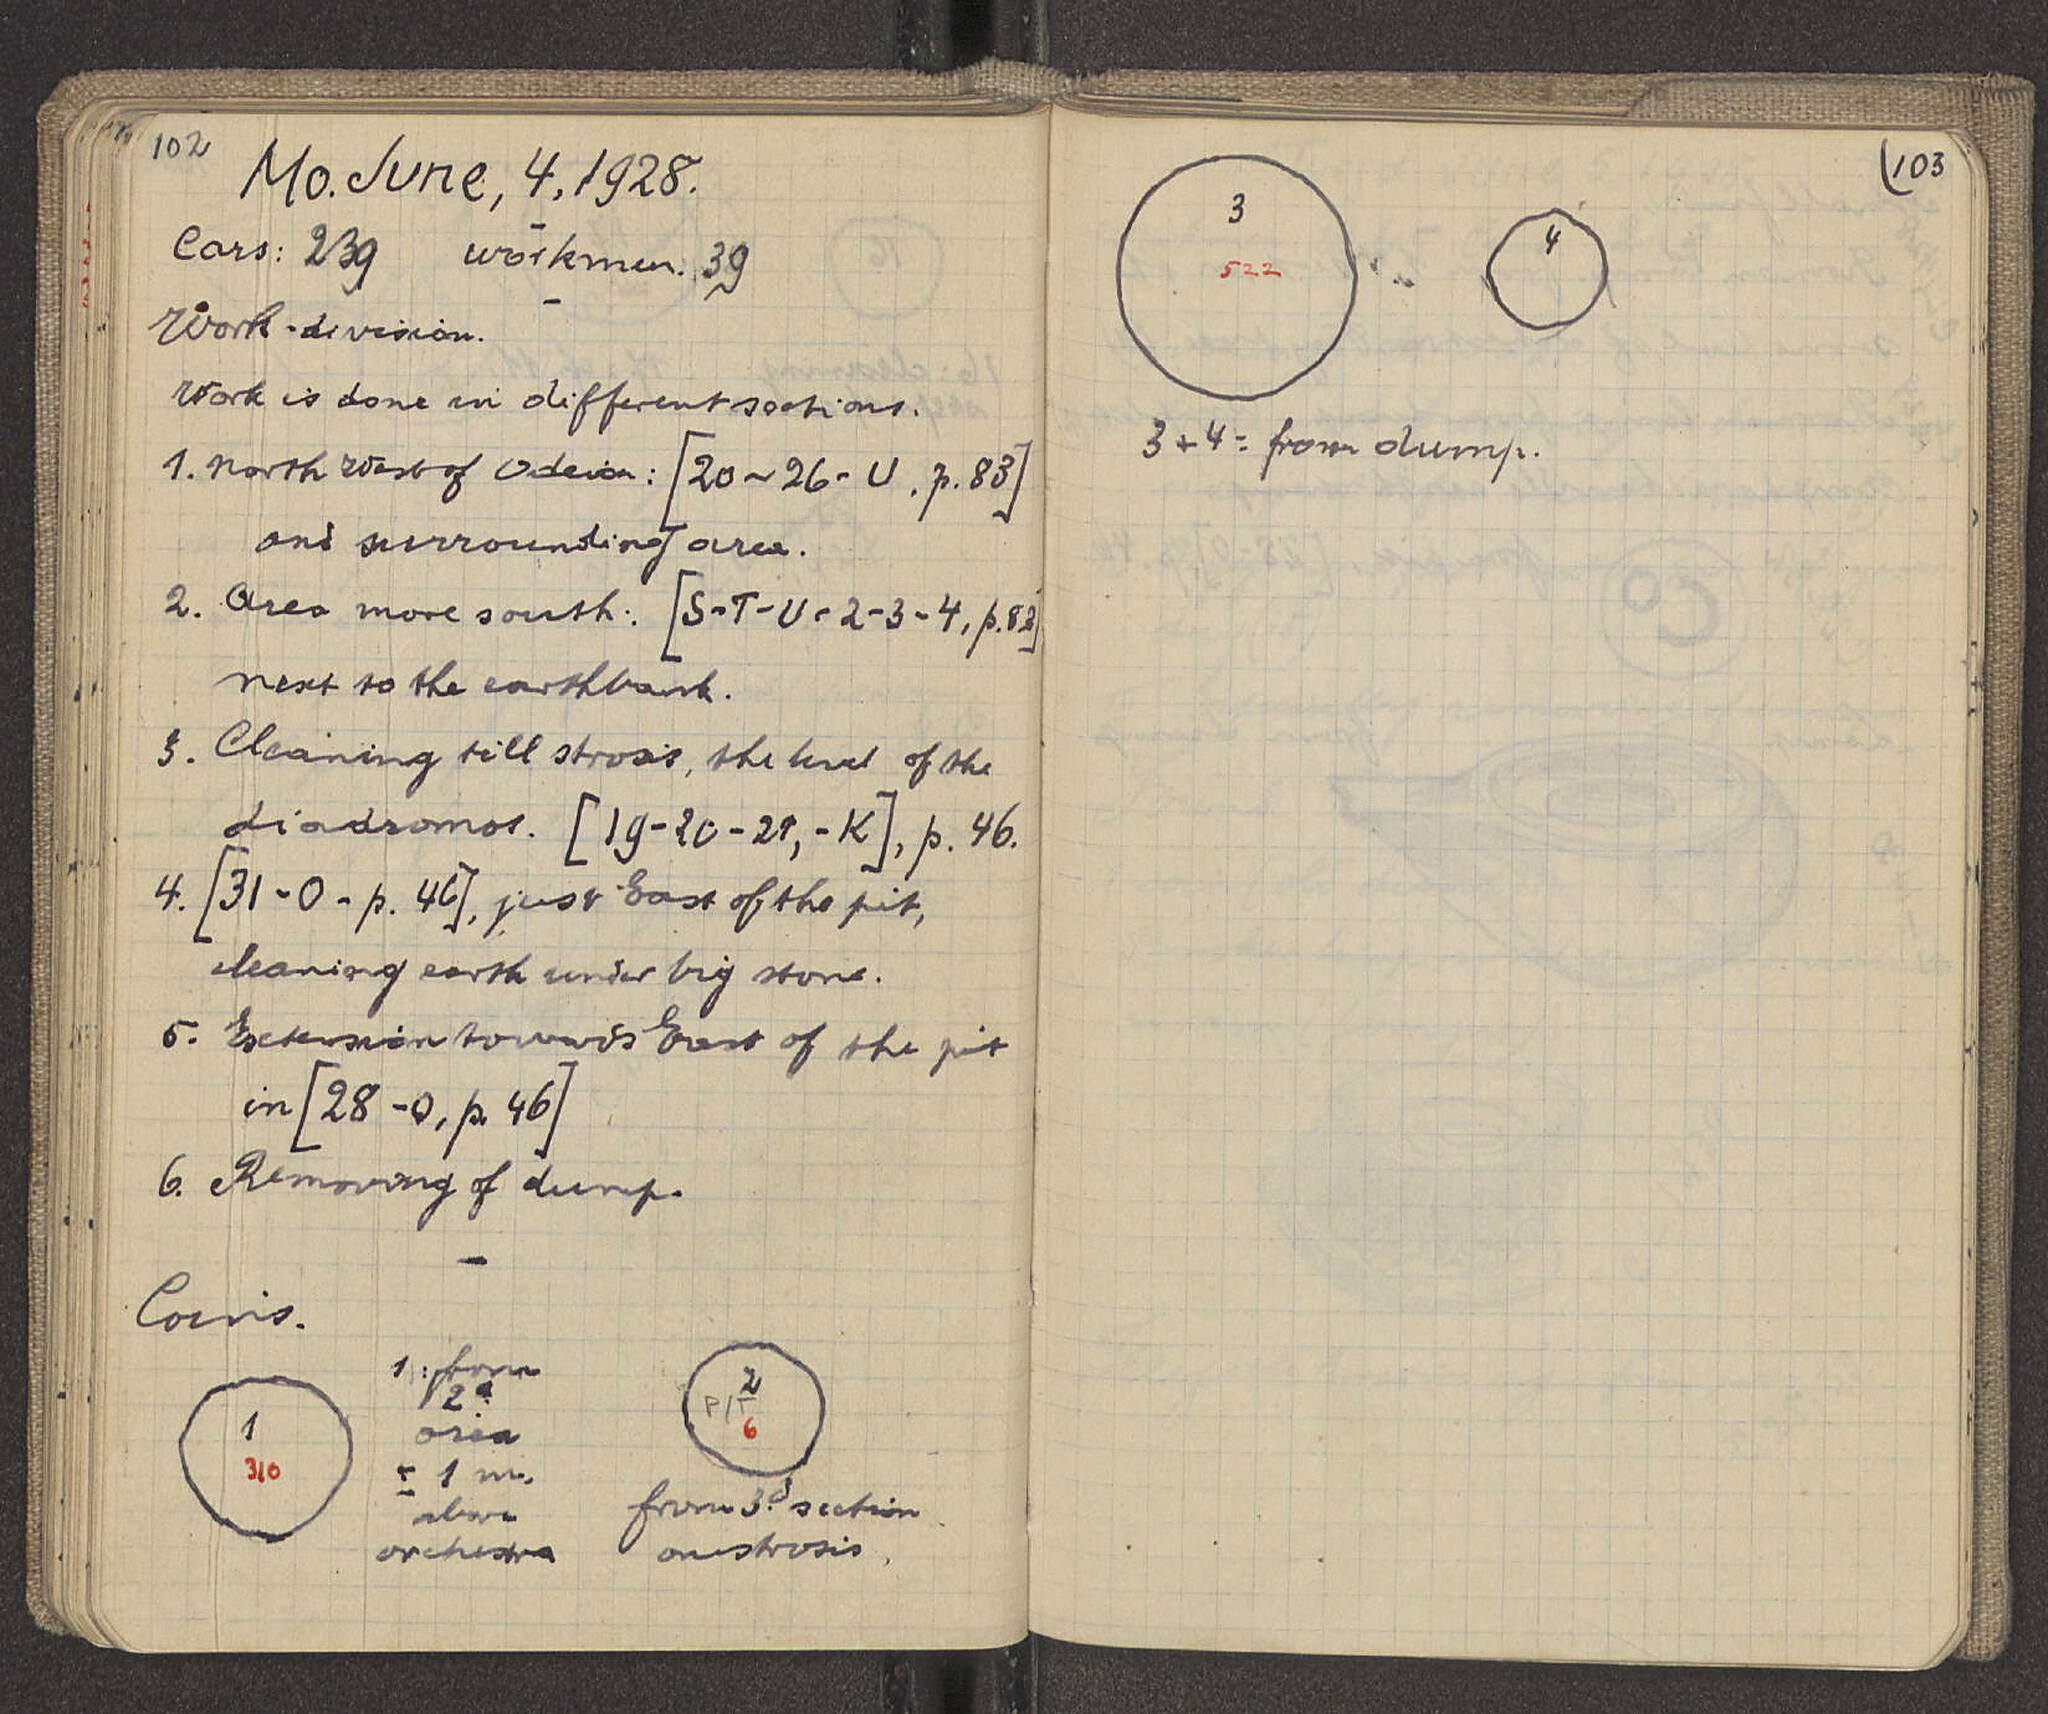 102
Mo. June, 4, 1928.
Cars: 239 workmen. 39
Work-division.
Work is done in different sections.
1. North West of Odeion: [20 ~ 26 - U, p. 83]
and surrounding area.
2. Area more south: [S-T-U-2-3-4, p. 83]
next to the earthbank.
3. Cleaning till strosis, the level of the
diadromos. [19-20-21, -K], p. 46.
4. [31-O-p. 46], just East of the pit,
cleaning earth under big stone.
5. Extension towards East of the pit
in [28-O, p. 46]
6. Removing of dump.
Coins.
1
310
1: from
2d
area
± 1 m.
above
orchestra
2
P/T
6
from 3d section
on strosis.
103
3
522
4
3 + 4 = from dump.